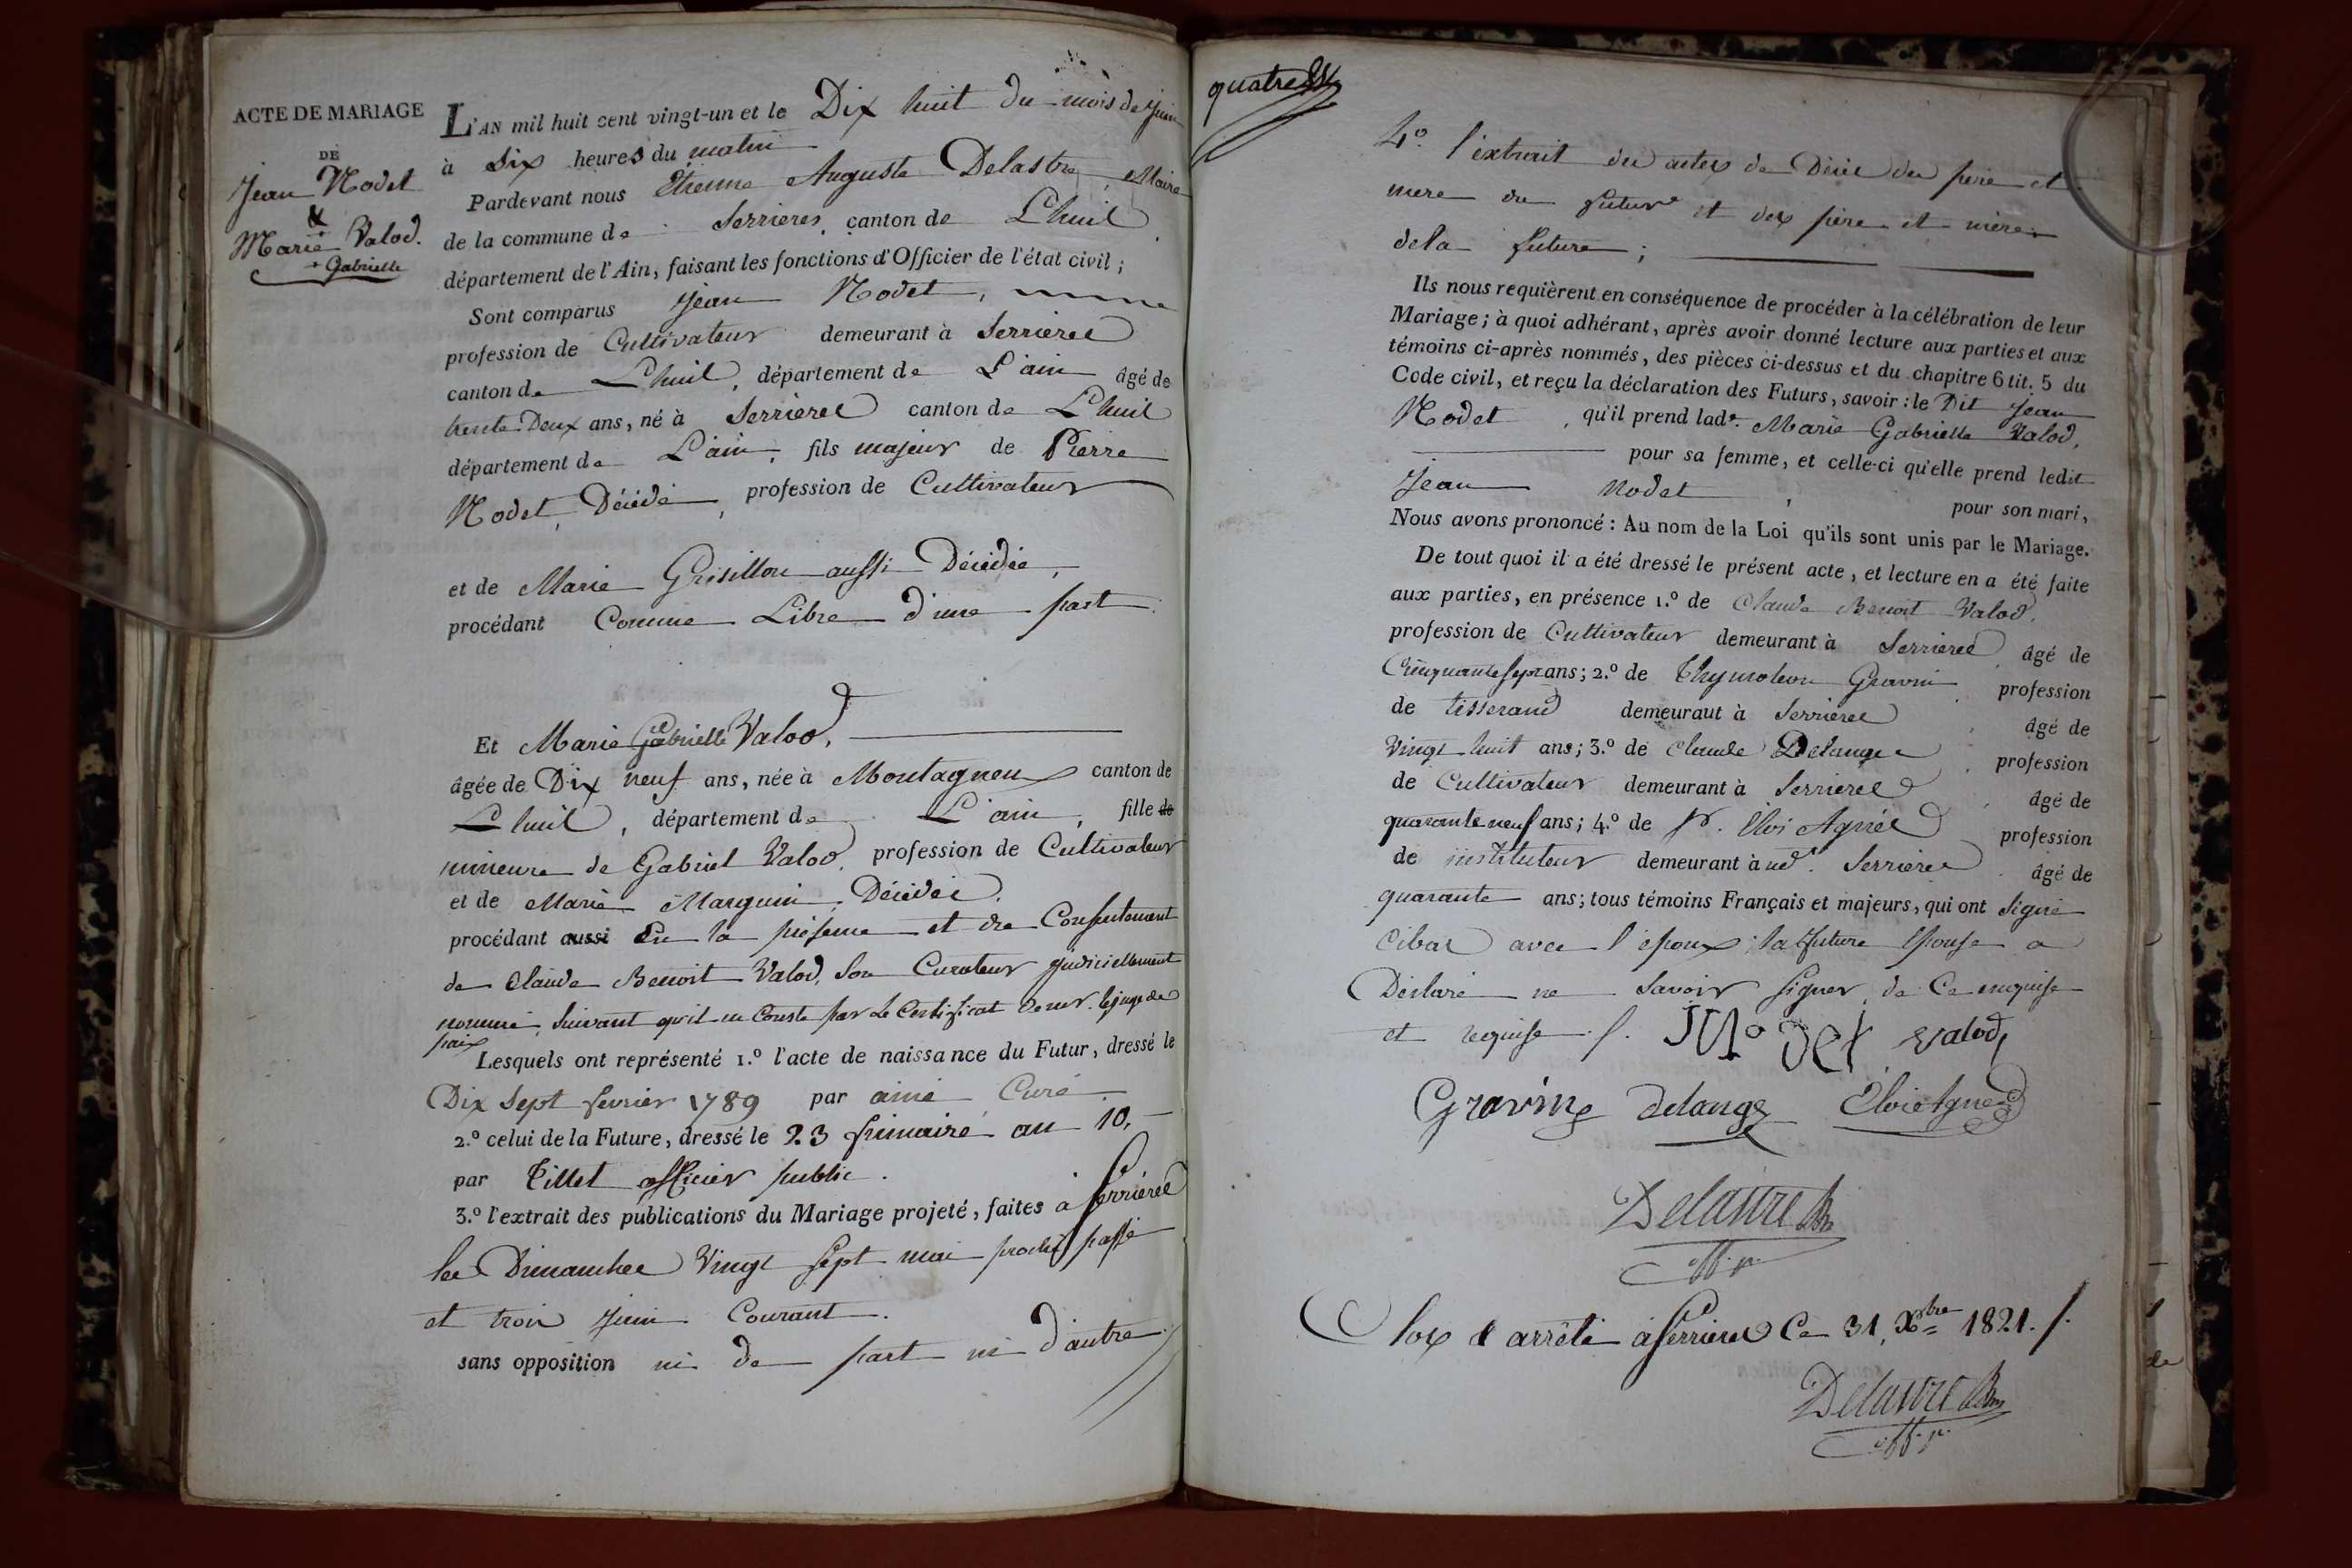 ACTE DE MARIAGE
DE
Jean Nodet
&
Marie Valod.
+ Gabrielle
L'AN mil huit cent vingt-un et le Dix huit du mois de Juin
à Six heures du matin
Pardevant nous Etienne Auguste Delastre, Maire
de la commune de Serrieres, canton de Lhuil,
département de l'Ain, faisant les fonctions d'Officier de l'état civil;
Sont comparus Jean Nodet,
profession de Cultivateur demeurant à Serrieres
canton de Lhuil, département de L'ain âgé de
trente Deux ans, né à Serrieres canton de Lhuil
département de L'ain, fils majeur de Pierre
Nodet, Décédé, profession de Cultivateur
et de Marie Grisillon aussi Décédée,
procédant Comme Libre d'une part.
Et Marie Gabrielle Valod,
âgée de Dix neuf ans, née à Montagneux canton de
Lhuil, département de L'ain, fille de
mineure de Gabriel Valod, profession de Cultivateur
et de Marie Marguin, Décédés,
procédant aussi En la présence et du Consentement
de Claude Benoit Valod, Son Curateur judiciellement
nommé, Suivant qu'il en Conste par le Certificat de mr. le juge de
paix
Lesquels ont représenté 1.º l'acte de naissance du Futur, dressé le
Dix Sept fevrier 1789 par aimé Curé
2.º celui de la Future, dressé le 23 frimaire an 10,
par Tillet officier public.
3.º l'extrait des publications du Mariage projeté, faites à Serrieres
les Dimanches Vingt Sept mai proche passé
et trois Juin Courant.
sans opposition ni de part ni d'autre.
quatre
4.º l'extrait des actes de Décès des père et
mere du futur et des père et mère
de la future;
Ils nous requièrent en conséquence de procéder à la célébration de leur
Mariage; à quoi adhérant, après avoir donné lecture aux parties et aux
témoins ci-après nommés, des pièces ci-dessus et du chapitre 6 tit. 5 du
Code civil, et reçu la déclaration des Futurs, savoir: le Dit Jean
Nodet, qu'il prend lade. Marie Gabrielle Valod,
pour sa femme, et celle-ci qu'elle prend ledit
Jean Nodet, pour son mari,
Nous avons prononcé: Au nom de la Loi qu'ils sont unis par le Mariage.
De tout quoi il a été dressé le présent acte, et lecture en a été faite
aux parties, en présence 1.º de Claude Benoit Valod,
profession de Cultivateur demeurant à Serrieres âgé de
Cinquante Sept ans; 2.º de Thymoleon Gravin profession
de tisserand demeurant à Serrieres âgé de
Vingt huit ans; 3.º de Claude Delange profession
de Cultivateur demeurant à Serrieres âgé de
quarante neuf ans; 4.º de Eloi Agniel profession
de instituteur demeurant à Serrieres âgé de
quarante ans; tous témoins Français et majeurs, qui ont Signé
Cibas avec l'epoux; la future Epouse a
Déclaré ne Savoir Signer de Ce enquise
et requise. /.
Nodet Valod
Gravin Delange Eloi Agniel
Delastre
Clos & arrêté à Serrieres Ce 31, Xbre 1821. /.
Delastre